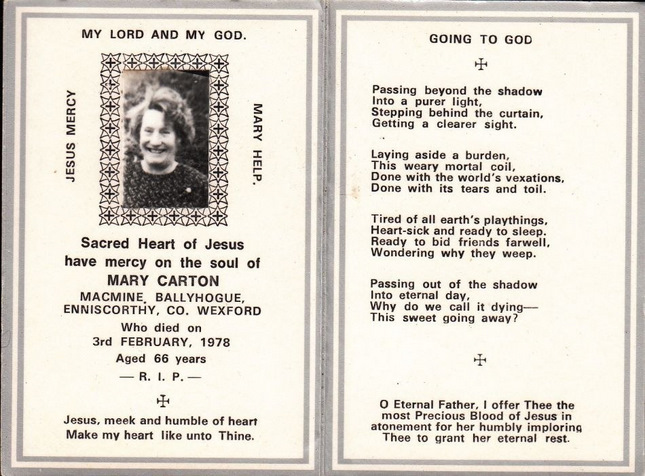 MY LORD AND MY GOD.
JESUS MERCY
MARY HELP.
Sacred Heart of Jesus
have mercy on the soul of
MARY CARTON
MACMINE, BALLYHOGUE,
ENNISCORTHY, CO. WEXFORD
Who died on
3rd FEBRUARY, 1978
Aged 66 years
— R. I. P. —
Jesus, meek and humble of heart
Make my heart like unto Thine.
GOING TO GOD
Passing beyond the shadow
Into a purer light,
Stepping behind the curtain,
Getting a clearer sight.
Laying aside a burden,
This weary mortal coil,
Done with the world's vexations,
Done with its tears and toil.
Tired of all earth's playthings,
Heart-sick and ready to sleep.
Ready to bid friends farwell,
Wondering why they weep.
Passing out of the shadow
Into eternal day,
Why do we call it dying—
This sweet going away?
O Eternal Father, I offer Thee the
most Precious Blood of Jesus in
atonement for her humbly imploring
Thee to grant her eternal rest.